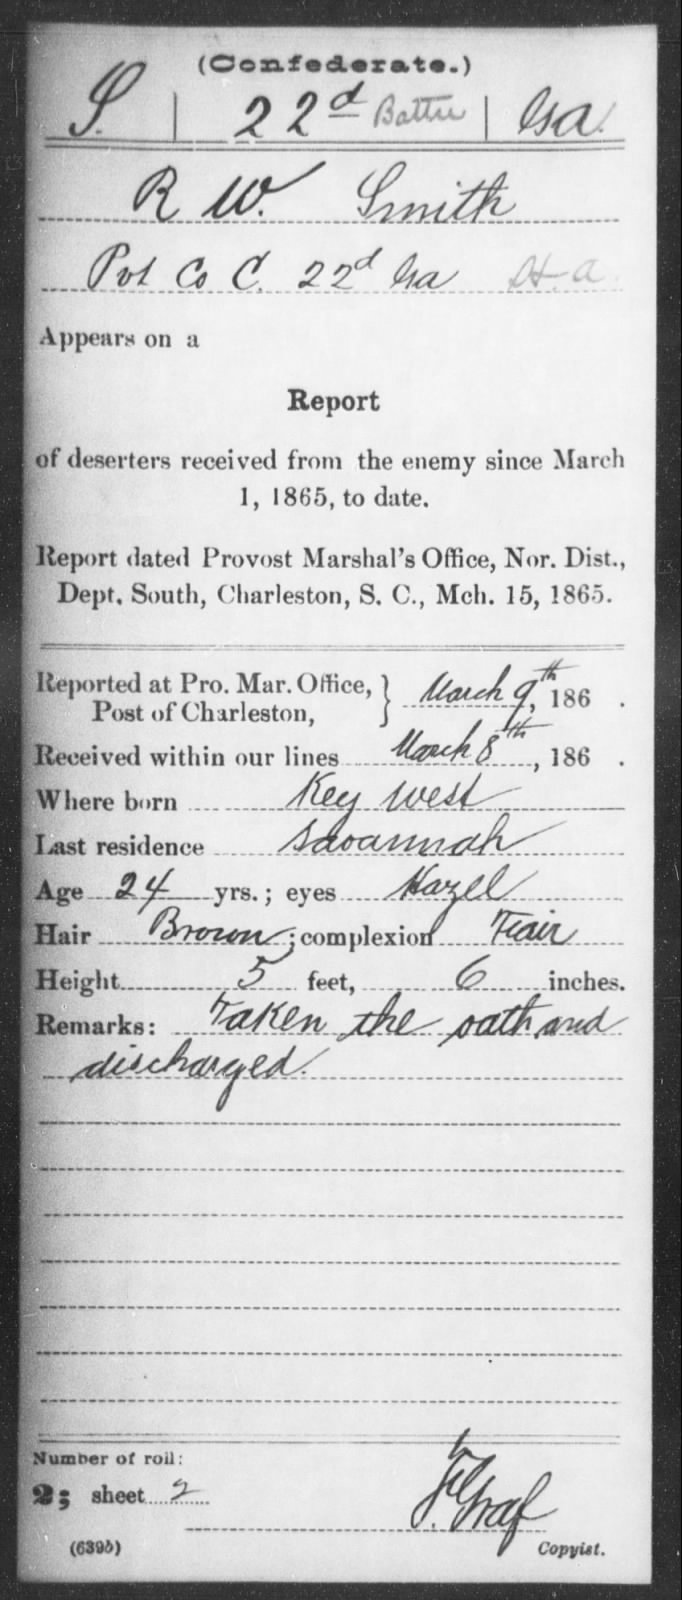 (Confederate.)
S. | 22d Battn | Ga.
R W. Smith
Pvt Co C. 22d Ga H. A.
Appears on a
Report
of deserters received from the enemy since March
1, 1865, to date.
Report dated Provost Marshal's Office, Nor. Dist.,
Dept. South, Charleston, S. C., Mch. 15, 1865.
Reported at Pro. Mar. Office, } March 9th, 186 .
Post of Charleston,
Received within our lines March 8th, 186 .
Where born Key West
Last residence Savannah
Age 24 yrs.; eyes Hazel
Hair Brown; complexion Fair
Height 5 feet, 6 inches.
Remarks: Taken the oath and
discharged.
Number of roll:
2; sheet 2
Graf
(639b) Copyist.